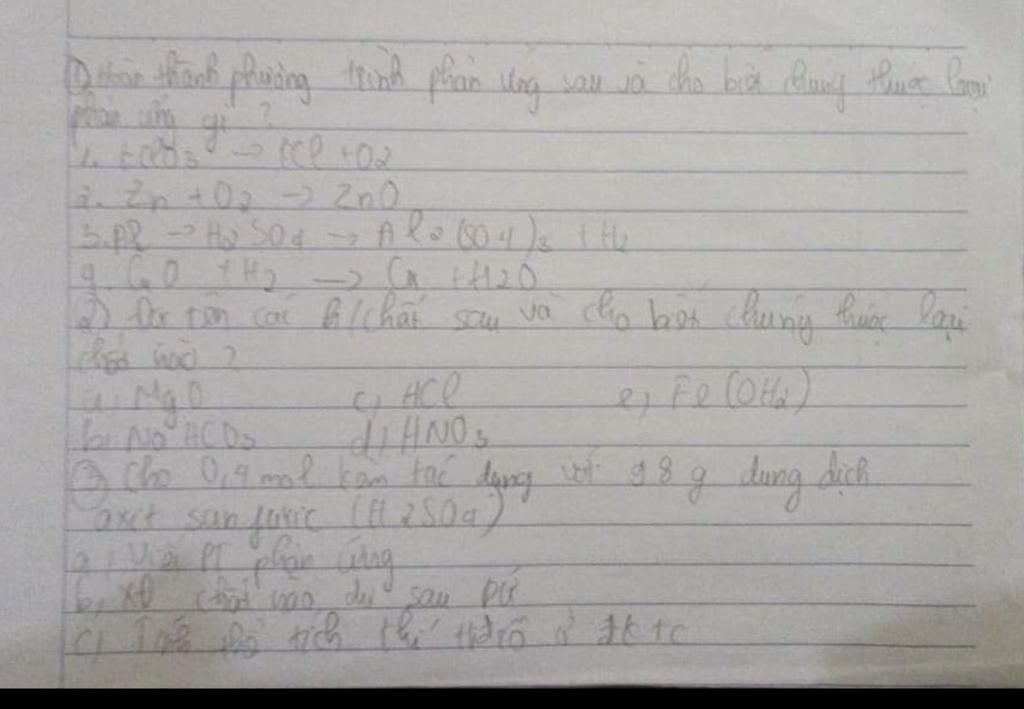 ① Hoàn thành phương trình phản ứng sau và cho biết chúng thuộc loại
phản ứng gì ?
1. KClO3 → KCl + O2
2. Zn + O2 → ZnO
3. Al → H2SO4 → Al2(SO4)3 + H2
4. CuO + H2 → Cu + H2O
2) Đọc tên các h/chất sau và cho biết chúng thuộc loại
chất nào ?
a, MgO c, HCl e, Fe(OH2)
b, NaHCO3 d, HNO3
③ Cho 0,4 mol kẽm tác dụng với 98 g dung dịch
axit sanfuric (H2SO4)
a, Viết PT phản ứng
b, XĐ chất nào dư sau PƯ
c, Tính thể tích khí Hidrô ở đktc